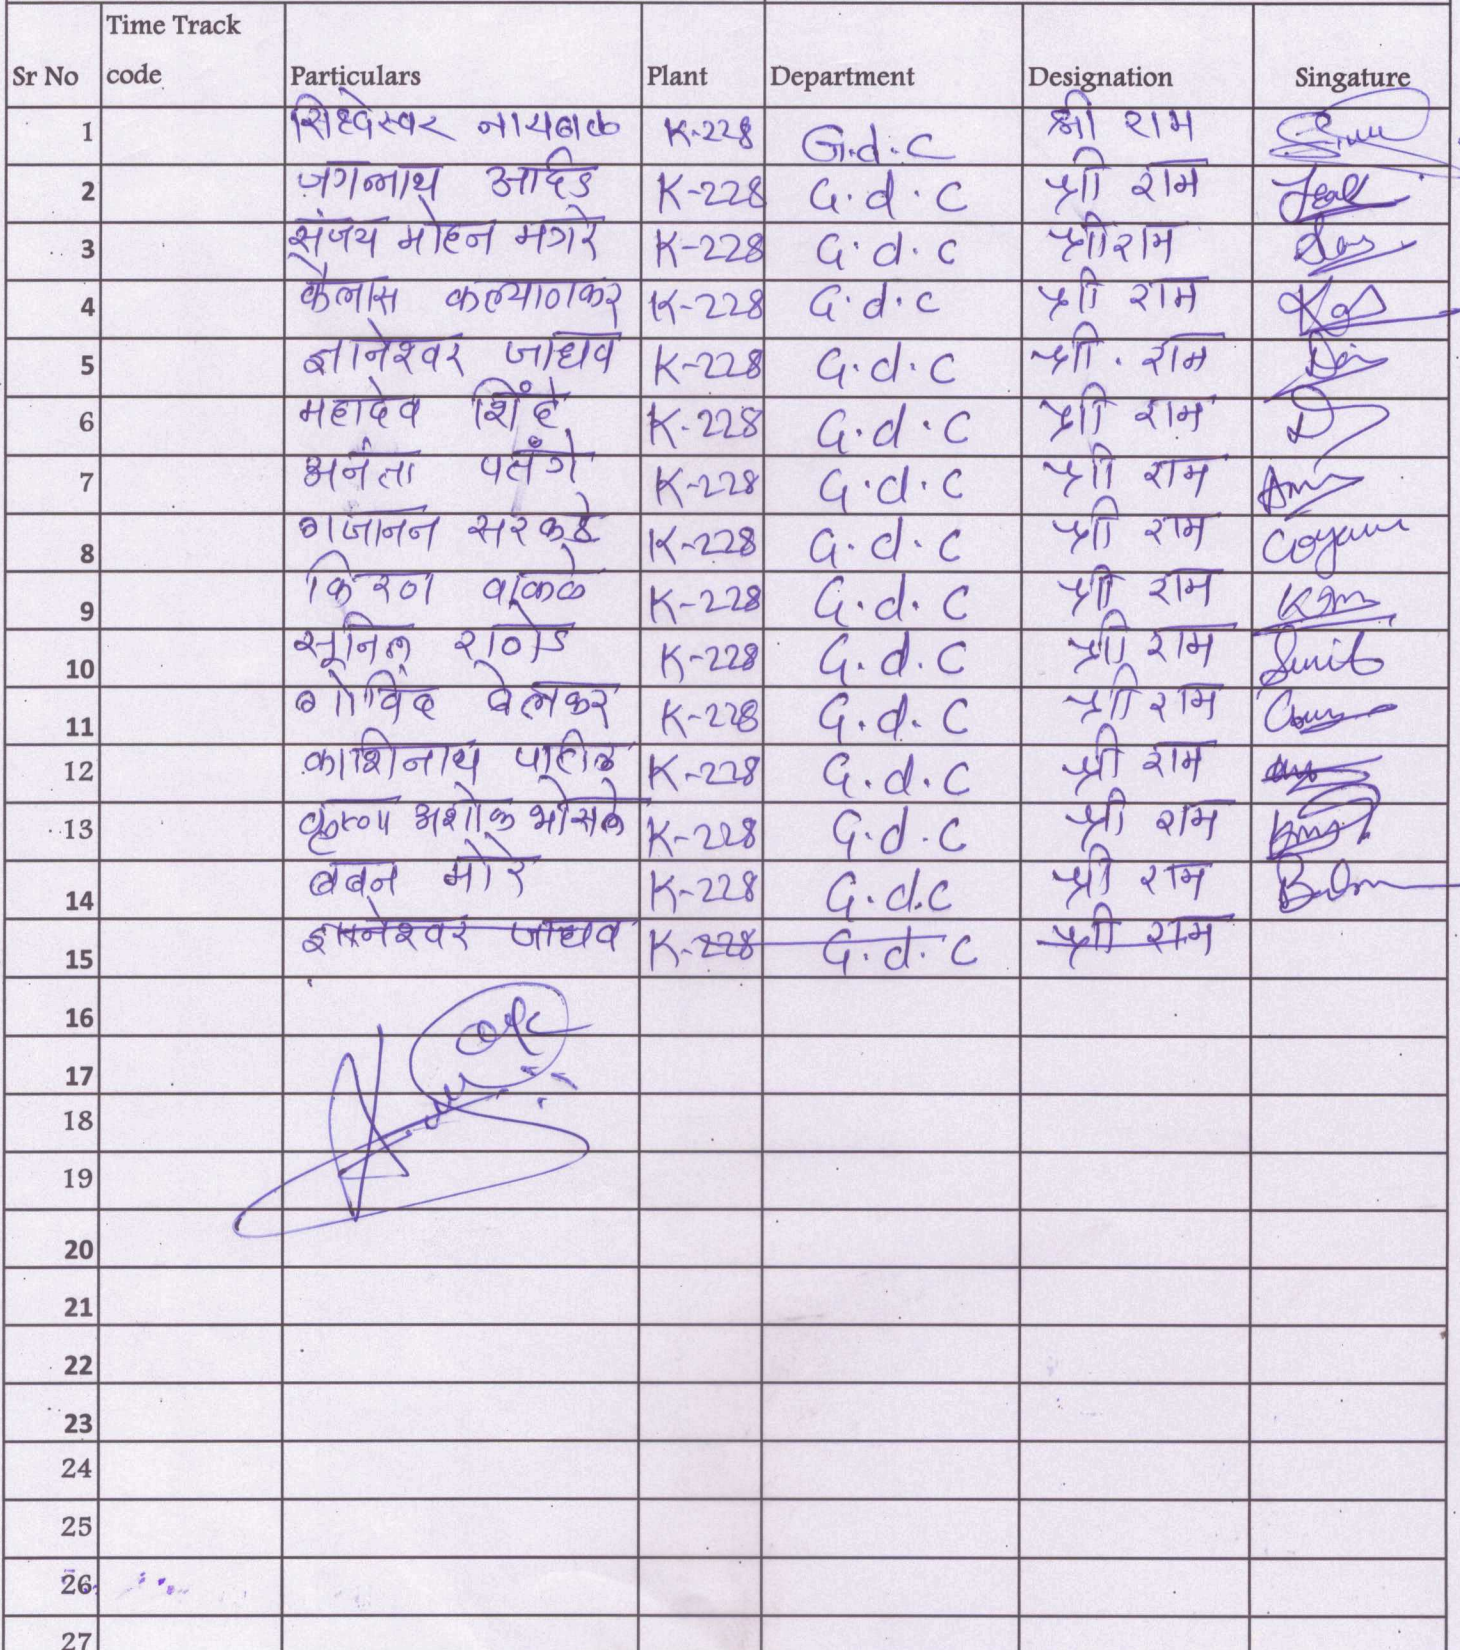 Time Track
Sr No code Particulars Plant Department Designation Singature
1 सिध्देस्वर नायबाळ K-228 G.d.C श्री राम
2 जगन्नाथ आर्दड K-228 G.d.C श्री राम
3 संजय मोहन मगरे K-228 G.d.C श्रीराम
4 कैलास कल्याणकर K-228 G.d.C श्री राम
5 ज्ञानेश्वर जाधव K-228 G.d.C श्री. राम
6 महादेव शिंदे K-228 G.d.C श्री राम
7 अनंता पतंगे K-228 G.d.C श्री राम
8 गजानन सरकटे K-228 G.d.C श्री राम
9 किरण वाकळे K-228 G.d.C श्री राम
10 सूनिल राठोड K-228 G.d.C श्री राम Sunil
11 गोविंद वेलकर K-228 G.d.C श्री राम
12 काशिनाथ पाटील K-228 G.d.C श्री राम
13 कृष्णा अशोक भोसले K-228 G.d.C श्री राम
14 बबन मोरे K-228 G.d.C श्री राम
15 ज्ञानेश्वर जाधव K-228 G.d.C श्री राम
16
17
18
19
20
21
22
23
24
25
26
27